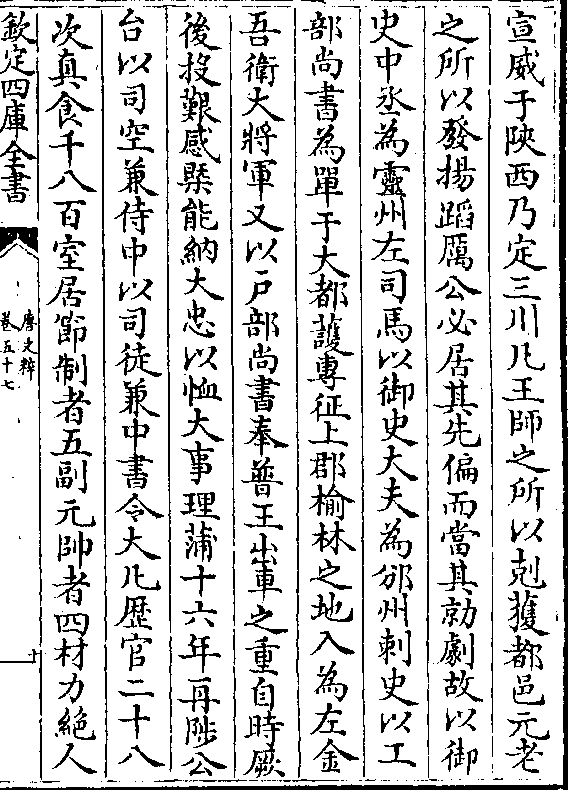 宣威于陜西乃定三川凡王師之所以剋獲都邑元老
之所以發揚蹈厲公必居其先偏而當其勍劇故以御
史中丞為靈州左司馬以御史大夫為邠州刺史以工
部尚書為單于大都護專征上郡榆林之地入為左金
吾衛大將軍又以戸部尚書奉普王出車之重自時厥
後投艱感槩能納大忠以恤大事理蒲十六年再陟公
台以司空兼侍中以司徒兼中書令大凡歴官二十八
次真食千八百室居節制者五副元帥者四材力絶人
欽定四庫全書
唐文粹
卷五十七
十